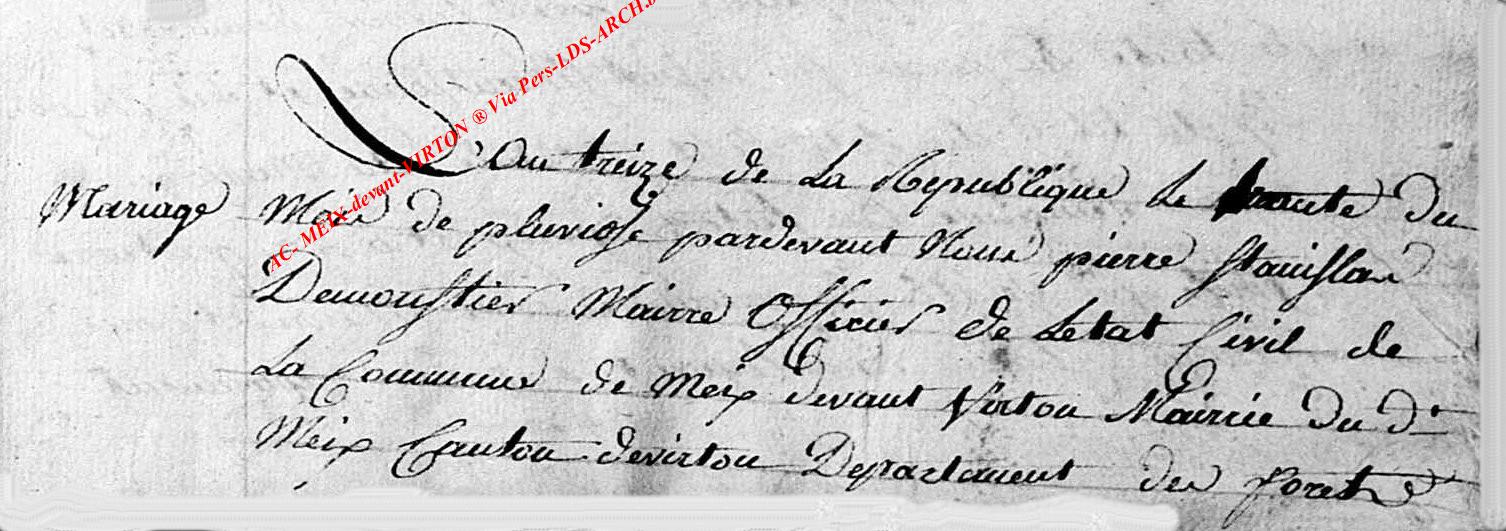 L'an treize de La Republique le trante du
Mariage
Mois de pluviose pardevant Nous pierre stanislas
Demoustier Mairre Officier de Letat Civil de
La Commune de Meix devant Virton Mairie du dt
Meix Canton devirton Departement des forets
AC- MEIX-devant-VIRTON ® Via Pers-LDS-ARCH.